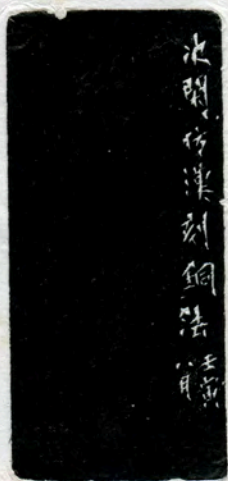 冰閑仿漢刻銅法
壬寅
八月